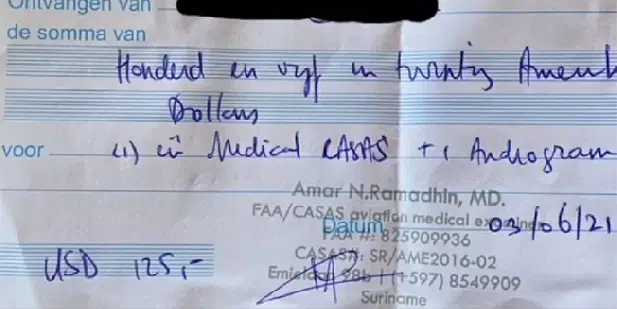 Ontvangen van
de somma van
Honderd en vijf en twintig Amerik
Dollars
voor (1) één Medical CASAS + 1 Audiogram
Amar N.Ramadhin, MD.
FAA/CASAS aviation medical examiner
Datum 03/06/21
FAA #: 825909936
CASAS#: SR/AME2016-02
98b (+597) 8549909
USD 125,-
Suriname